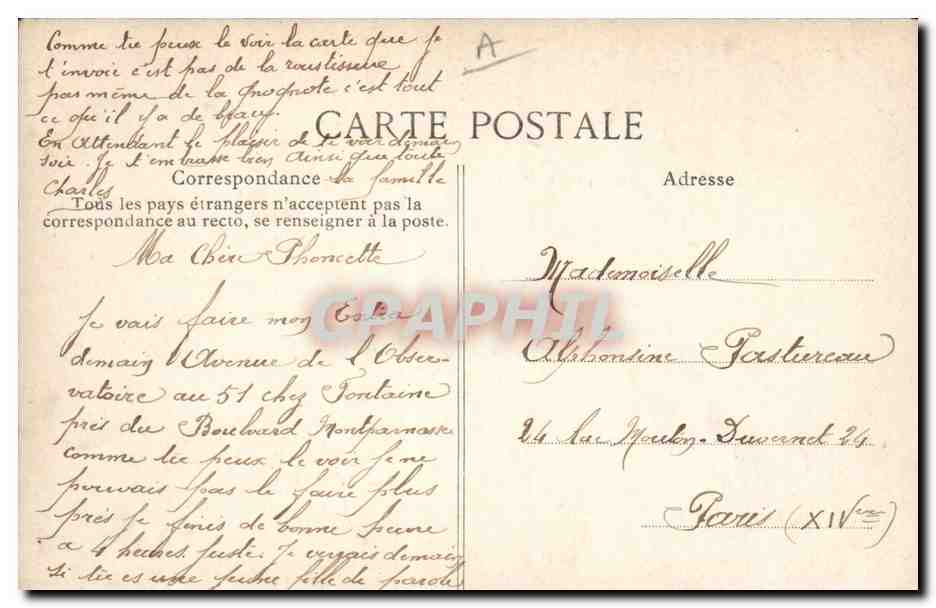 Comme tu peux le voir la carte que je
t'envoie c'est pas de la roustissure
pas même de la gnognote c'est tout
ce qu'il y a de beau.
En attendant le plaisir de te voir demain
soir. Je t'embrasse bien ainsi que toute
la famille
Charles
A
CARTE POSTALE
Correspondance
Tous les pays étrangers n'acceptent pas la
correspondance au recto, se renseigner à la poste.
Ma Chère Phoncette
Je vais faire mon Extra
demain Avenue de l'Obser-
vatoire au 51 chez Fontaine
près du Boulvard Montparnasse
comme tu peux le voir je ne
pouvais pas le faire plus
près je finis de bonne heure
a 4 heures juste. Je verrais demain
si tu es une jeune fille de parole
Adresse
Mademoiselle
Alphonsine Pastureau
24 Rue Mouton-Duvernet 24
Paris (XIVème)
CPAPHIL